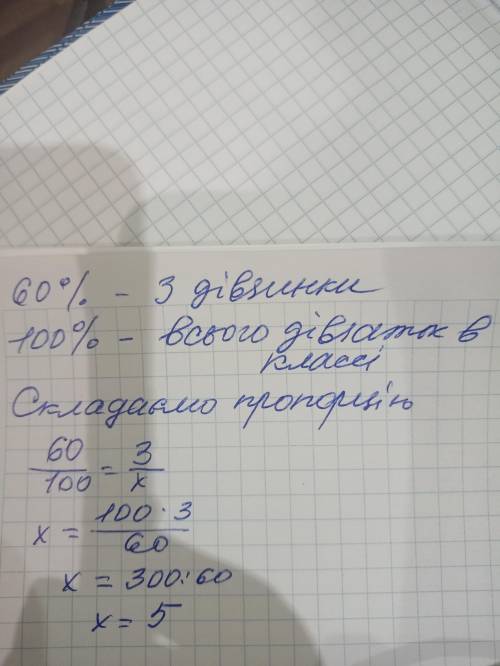 60% - 3 дівчинки
100% - всього дівчаток в
классі
Складаємо пропорцію
60/100 = 3/x
x = 100·3/60
x = 300:60
x = 5